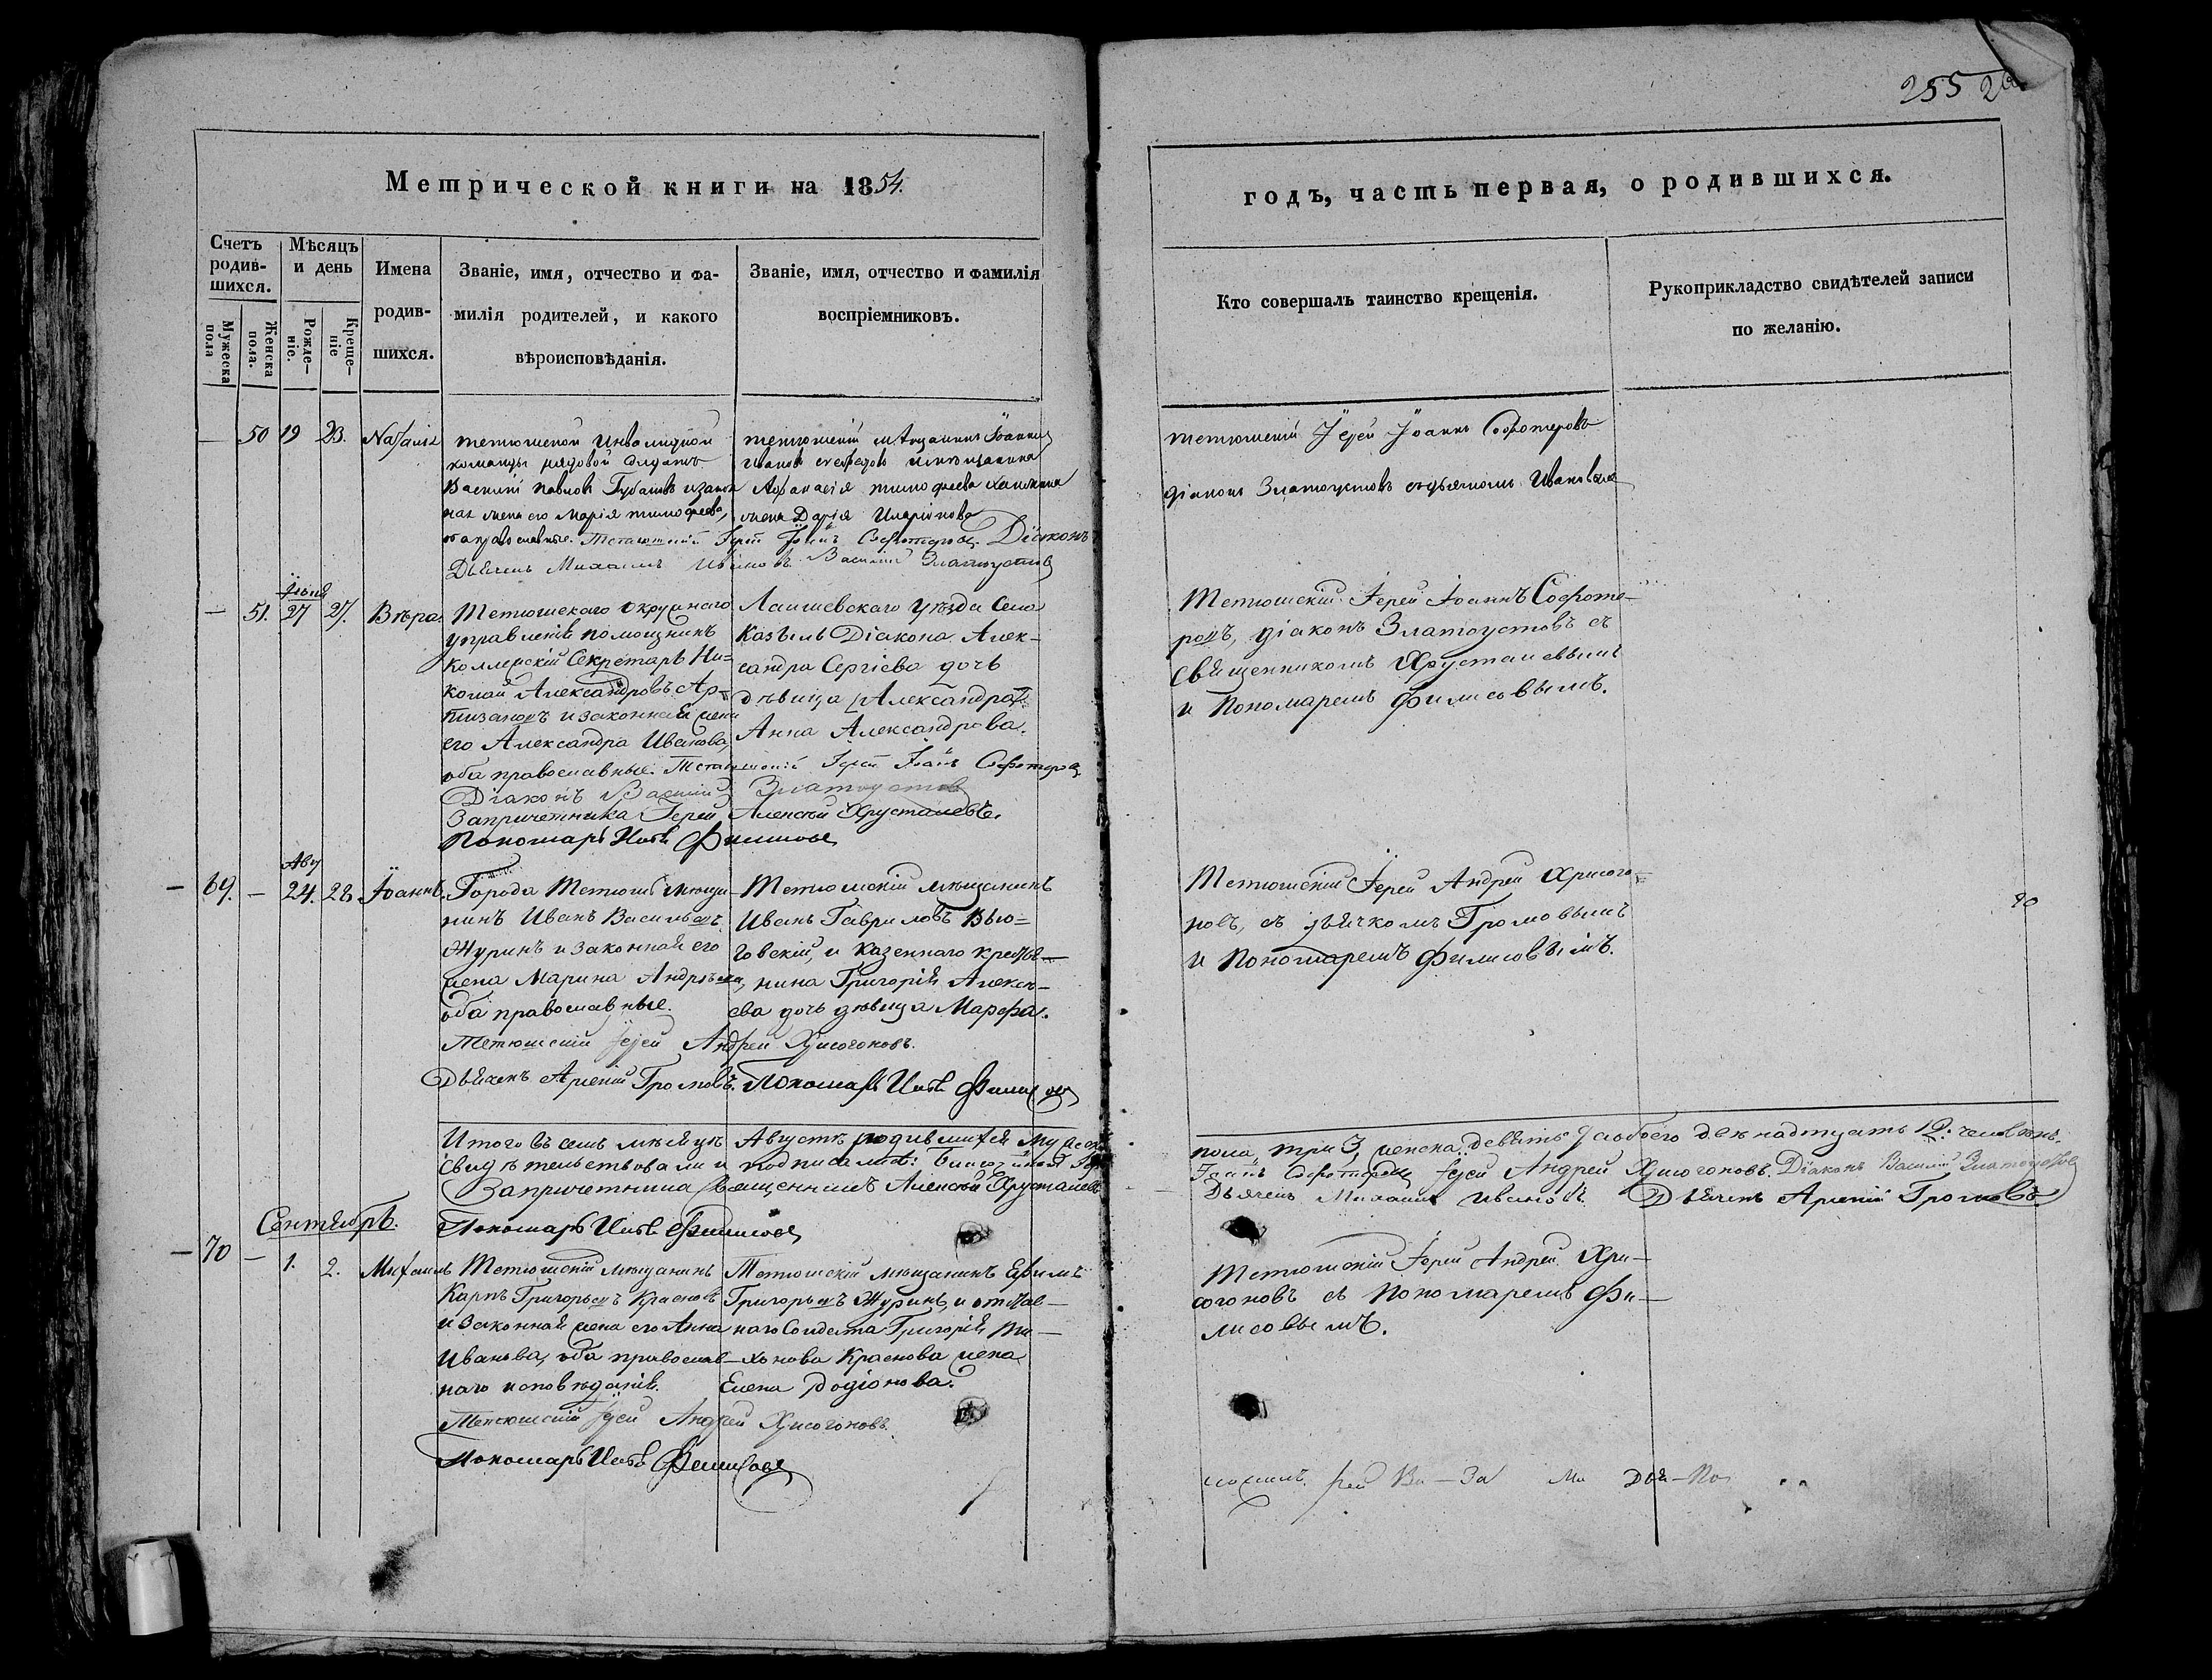 255
Метрической книги на 1854.
годъ, часть первая, о родившихся.
Счетъ родив-шихся.
Мужеска пола
Женска пола.
Мѣсяцъ и день
Рожде-ніе.
Креще-ніе
Имена
родив-
шихся.
Званіе, имя, отчество и фа-
милія родителей, и какого
вѣроисповѣданія.
Званіе, имя, отчество и фамилія
воспріемниковъ.
Кто совершалъ таинство крещенія.
Рукоприкладство свидѣтелей записи
по желанію.
50 19 23.
тетюшской Инвалидной
команды рядовой солдатъ
Василій Павловъ
жена его Марія тимофеева,
православные. Тетюшскій Іерей Іоаннъ Софотеровъ Діаконъ
Дьячекъ Михаилъ Ивановъ Василій Златоустовъ
тетюшскій мѣщанинъ Іоаннъ
Ивановъ
Афанасія тимофеева
жена Дарія Иларіонова
тетюшскій Іерей Іоаннъ Софотеровъ
діаконъ Златоустовъ съ дьячкомъ Ивановымъ
51. 27 27. Вѣра.
Тетюшскаго Окружнаго
управленія помощникъ
Коллежскій Секретарь Ни=
колай Александровъ Ар=
тизановъ и законная жена
его Александра Иванова,
оба православные. Тетюшскій Іерей Іоаннъ Софотеровъ
Діаконъ Василій Златоустовъ
Запричетника Іерей Алексѣй Хрусталевъ.
Пономарь Филисовъ
Лаишевскаго уѣзда села
Діакона Алек-
сандра Сергіева дочь
дѣвица Александра
Анна Александрова.
Тетюшскій Іерей Іоаннъ Софоте-
ровъ, діаконъ Златоустовъ съ
Священникомъ Хрусталевымъ
и Пономаремъ Филисовымъ.
Авгу
69. – 24. 28 Іоаннъ.
Города Тетюшъ мѣща-
нинъ Иванъ Васильевъ
Журинъ и законная его
жена Марина Андрѣева,
оба православные.
Тетюшскій Іерей Андрей Хрисогоновъ.
Дьячекъ Арсеній Громовъ. Пономарь Филисовъ
Тетюшскій мѣщанинъ
Иванъ Гавриловъ Вью=
говскій, и казеннаго крестья-
нина Григорія Алексѣ-
ева дочь дѣвица Марфа.
Тетюшскій Іерей Андрей Хрисого-
новъ, съ дьячкомъ Громовымъ
и Пономаремъ Филисовымъ.
Итого въ семъ мѣсяцѣ Августѣ родившихся мужеска
пола, три 3, женска девять 9 а обоего двенадцать 12. человѣкъ.
Свидѣтельствовали и подписались:
Іоаннъ Софотеровъ Іерей Андрей Хрисогоновъ. Діаконъ Василій Златоустовъ
Запричетника Священникъ Алексѣй Хрусталевъ
Дьячекъ Михаилъ Ивановъ Дьячекъ Арсеній Громовъ
Пономарь Филисовъ
Сентябрь.
70 – 1. 2. Михаилъ
Тетюшскій мѣщанинъ
Карпъ Григорьевъ Красновъ
и законная жена его Анна
Иванова, оба православ-
наго исповѣданія.
Тетюшскій Іерей Андрей Хрисогоновъ.
Пономарь Филисовъ
Тетюшскій мѣщанинъ Ефимъ
Григорьевъ Журинъ, и отстав-
наго Солдата Григорія Ти-
хонова Краснова жена
Елена Родіонова.
Тетюшскій Іерей Андрей Хри-
согоновъ съ Пономаремъ Фи-
лисовымъ.